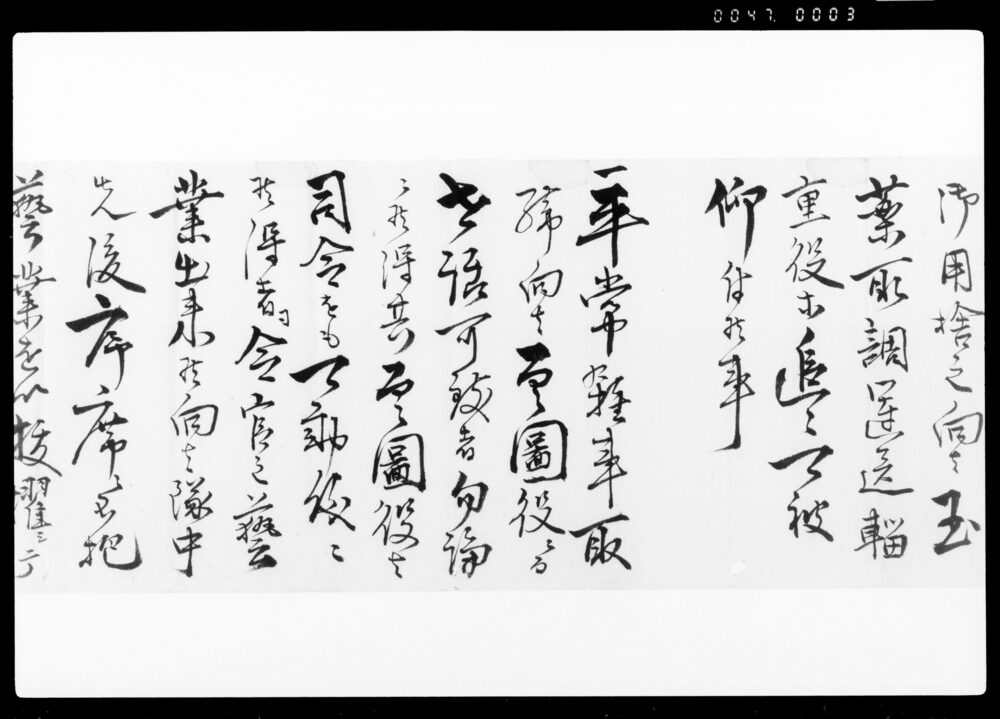 0047. 0003
御用捨之向者玉
薬取調運送輜
重役等追々可被
仰付候事
一平常雑事取
締向者差図役ニ而
世話可致者勿論
ニ候得共差図役者
司令をも可勤役ニ
候得者令官之芸
業出来候向者隊中
先後序席ニ不抱
芸業を以抜擢